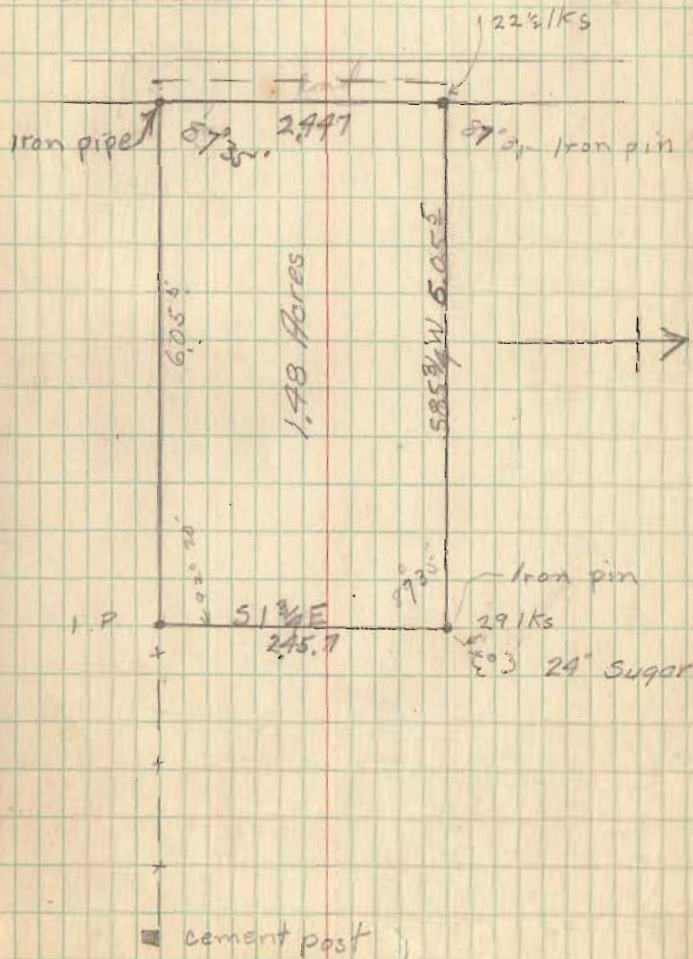 22½ lks
Road
Iron pipe
87° 35'
2.447
87°
Iron pin
6.05⁵
1.48 Acres
S 85¾ W 6.05⁵
92° 20'
87° 30'
Iron pin
I.P
S 1¾ E
245.7
29 lks
24" Sugar
cement post